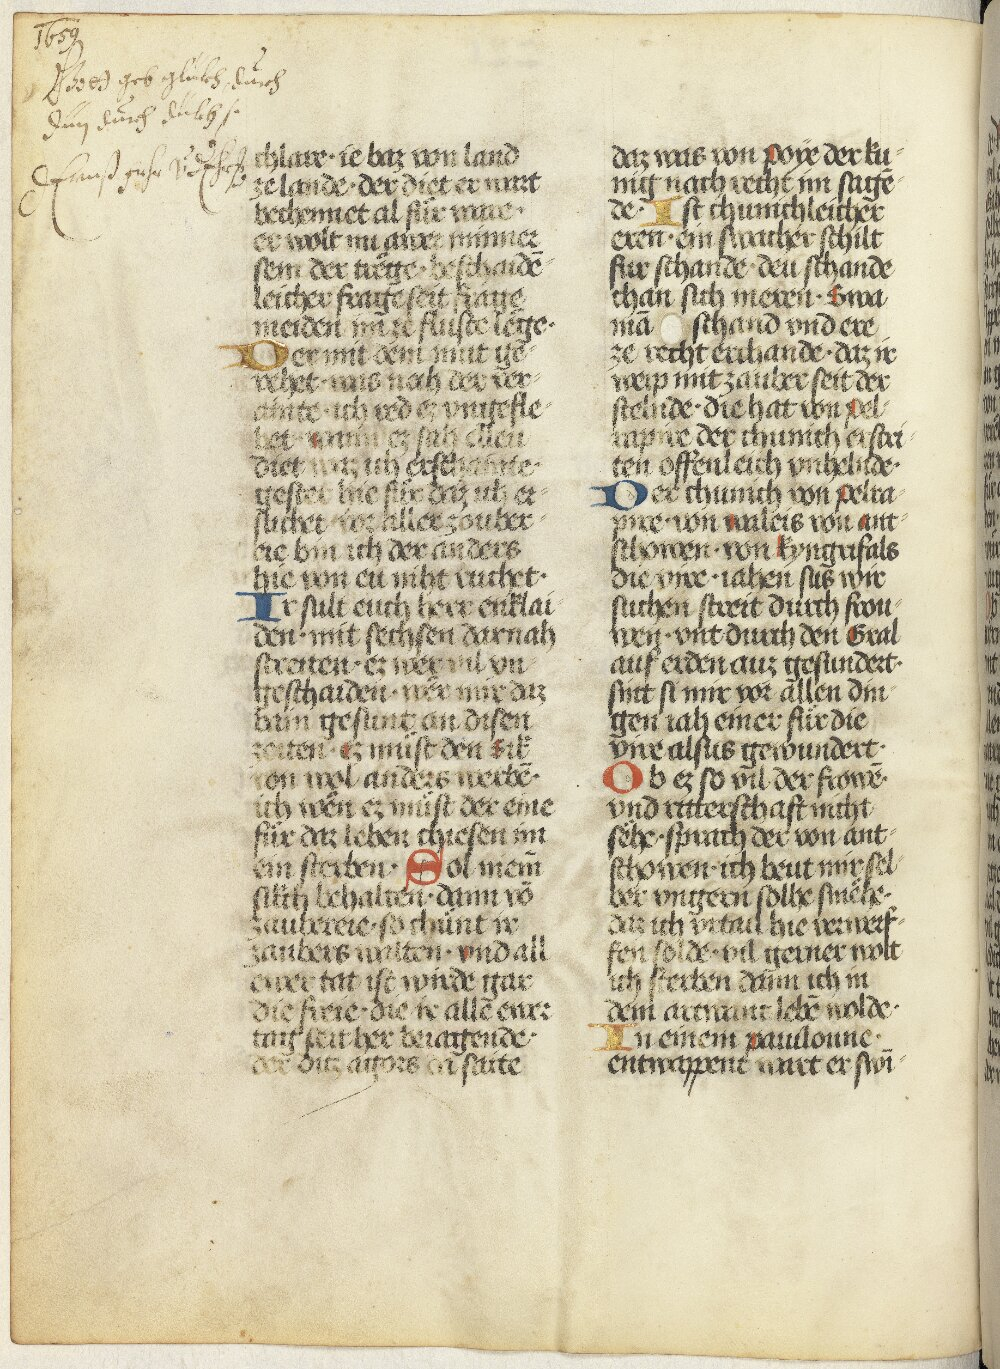 1659
geb glükh durch
durch
chlare · ie baz von land
ze lande · der diet er wart
bechennet al für ware ·
er wolt nu awer nimmer
sein der træge · beschaidē-
leicher frage seit frage
meiden im ze fluste lege ·
Der mit dem mut ge-
vehet · was noch der ver-
ainte · ich red ez vngefle-
het · wann ez sah ellen
diet waz ich erschainte ·
gester hie für daz ich er-
suchet · vor aller zouber-
eie bin ich der anders
hie von eu niht ruchet ·
Ir sult euch herr enklai-
den · mit sechsen darnah
streiten · ez wer vil vn-
geschaiden · wer mir daz
bain gesunt an disen
zeiten · ez müst den Sik
ren wol anders werbē ·
ich wen ez müst der eine
für daz leben chiesen im
ein sterben · Sol mein
sikch behalten · dann vō
zaubereie · so chünt ir
zaubers walten · vnd all
ewer tat ist wirde gar
die freie · die ir allē ewr
tag seit her beiagende ·
der ditz aigors da saite
daz was von poye der ku-
nig nach recht im sagē-
de · Ist chunichleicher
eren · ein swacher schilt
für schande · den schande
chan sich meren · Swa
mā schand vnd ere
ze recht erchande · daz ir
werp mit zauber seit der
stelnde · die hat von pel-
rapire der chunich erstri-
ten offenleich vnhelnde ·
Der chunich von pelra-
pire · von waleis von ant-
schowen · von kyngrifals
die vire · iahen sus wir
suchen streit durch frou-
wen · vnt durch den Gral
auf erden auz gesundert ·
sint si mir vor allen din-
gen iah einer für die
vire alsus gewundert ·
Ob ez so vil der frowē ·
vnd ritterschaft niht
sehe · sprach der von ant-
schowen · ich beut mir sel-
ber vngern solhe smehe ·
daz ich vrtail hie verwerf-
fen solde · vil gerner wolt
ich sterben dann ich in
dem artwant lebē wolde ·
In einem paulonne ·
entwappent wart er swi-